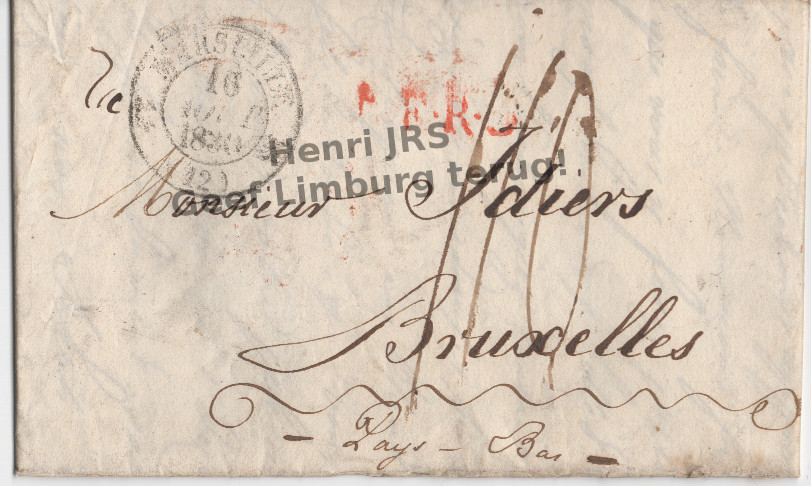 MARSEILLE
16
AOUT
1830
(12)
Henri JRS
Geef Limburg terug!
Monsieur Idiers
Bruxelles
- Pays - Bas -